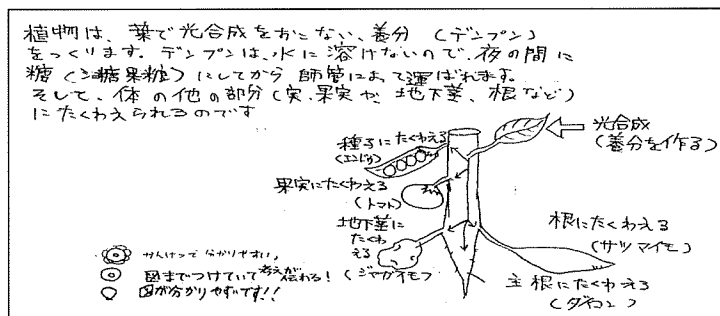 植物は、葉で光合成をおこない、養分(デンプン)
をつくります。デンプンは、水に溶けないので、夜の間に
糖(ショ糖果糖)にしてから師管によって運ばれます。
そして、体の他の部分(実、果実や、地下茎、根など)
にたくわえられるのです
種子にたくわえる
(エンドウ)
光合成
(養分を作る)
果実にたくわえる
(トマト)
地下茎に
たくわ
える
(ジャガイモ)
根にたくわえる
(サツマイモ)
主根にたくわえる
(ダイコン)
かんけつで分かりやすい。
図までつけていて考えが伝わる!
図が分かりやすいです!!